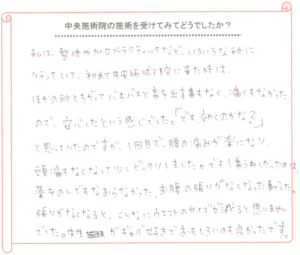 中央施術院の施術を受けてみてどうでしたか？
私は、整体やカイロプラクティックなど、いろいろな所に
行っていて、初めて中央施術院に来た時は、
ほかの所とちがってバキバキと音も出す事もなく、痛くもなかった
ので、安心したという感じでした。「でも、効くのかな？」
と思っていたのですが、1回目で、腰の痛みが楽になり、
頭痛もなくなって少しビックリしました。でも1番うれしかったのは、
薬をのんでもなおらなかった、お腹の張りがなくなった事でした。
張りがなくなると、こんなにウエストのサイズが減ると思いません
でした。先生 がギャグ好きでおもしろいのも良かったです。